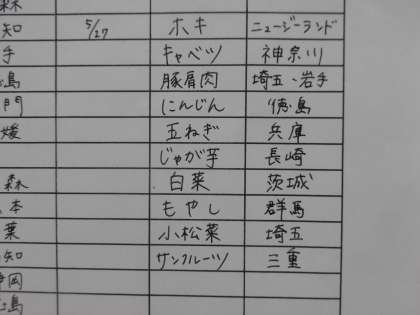 森
知 5/27 ホキ ニュージーランド
手 キャベツ 神奈川
島 豚肩肉 埼玉、岩手
門 にんじん 徳島
媛 玉ねぎ 兵庫
じゃが芋 長崎
森 白菜 茨城
本 もやし 群馬
葉 小松菜 埼玉
知 サンフルーツ 三重
岡
島